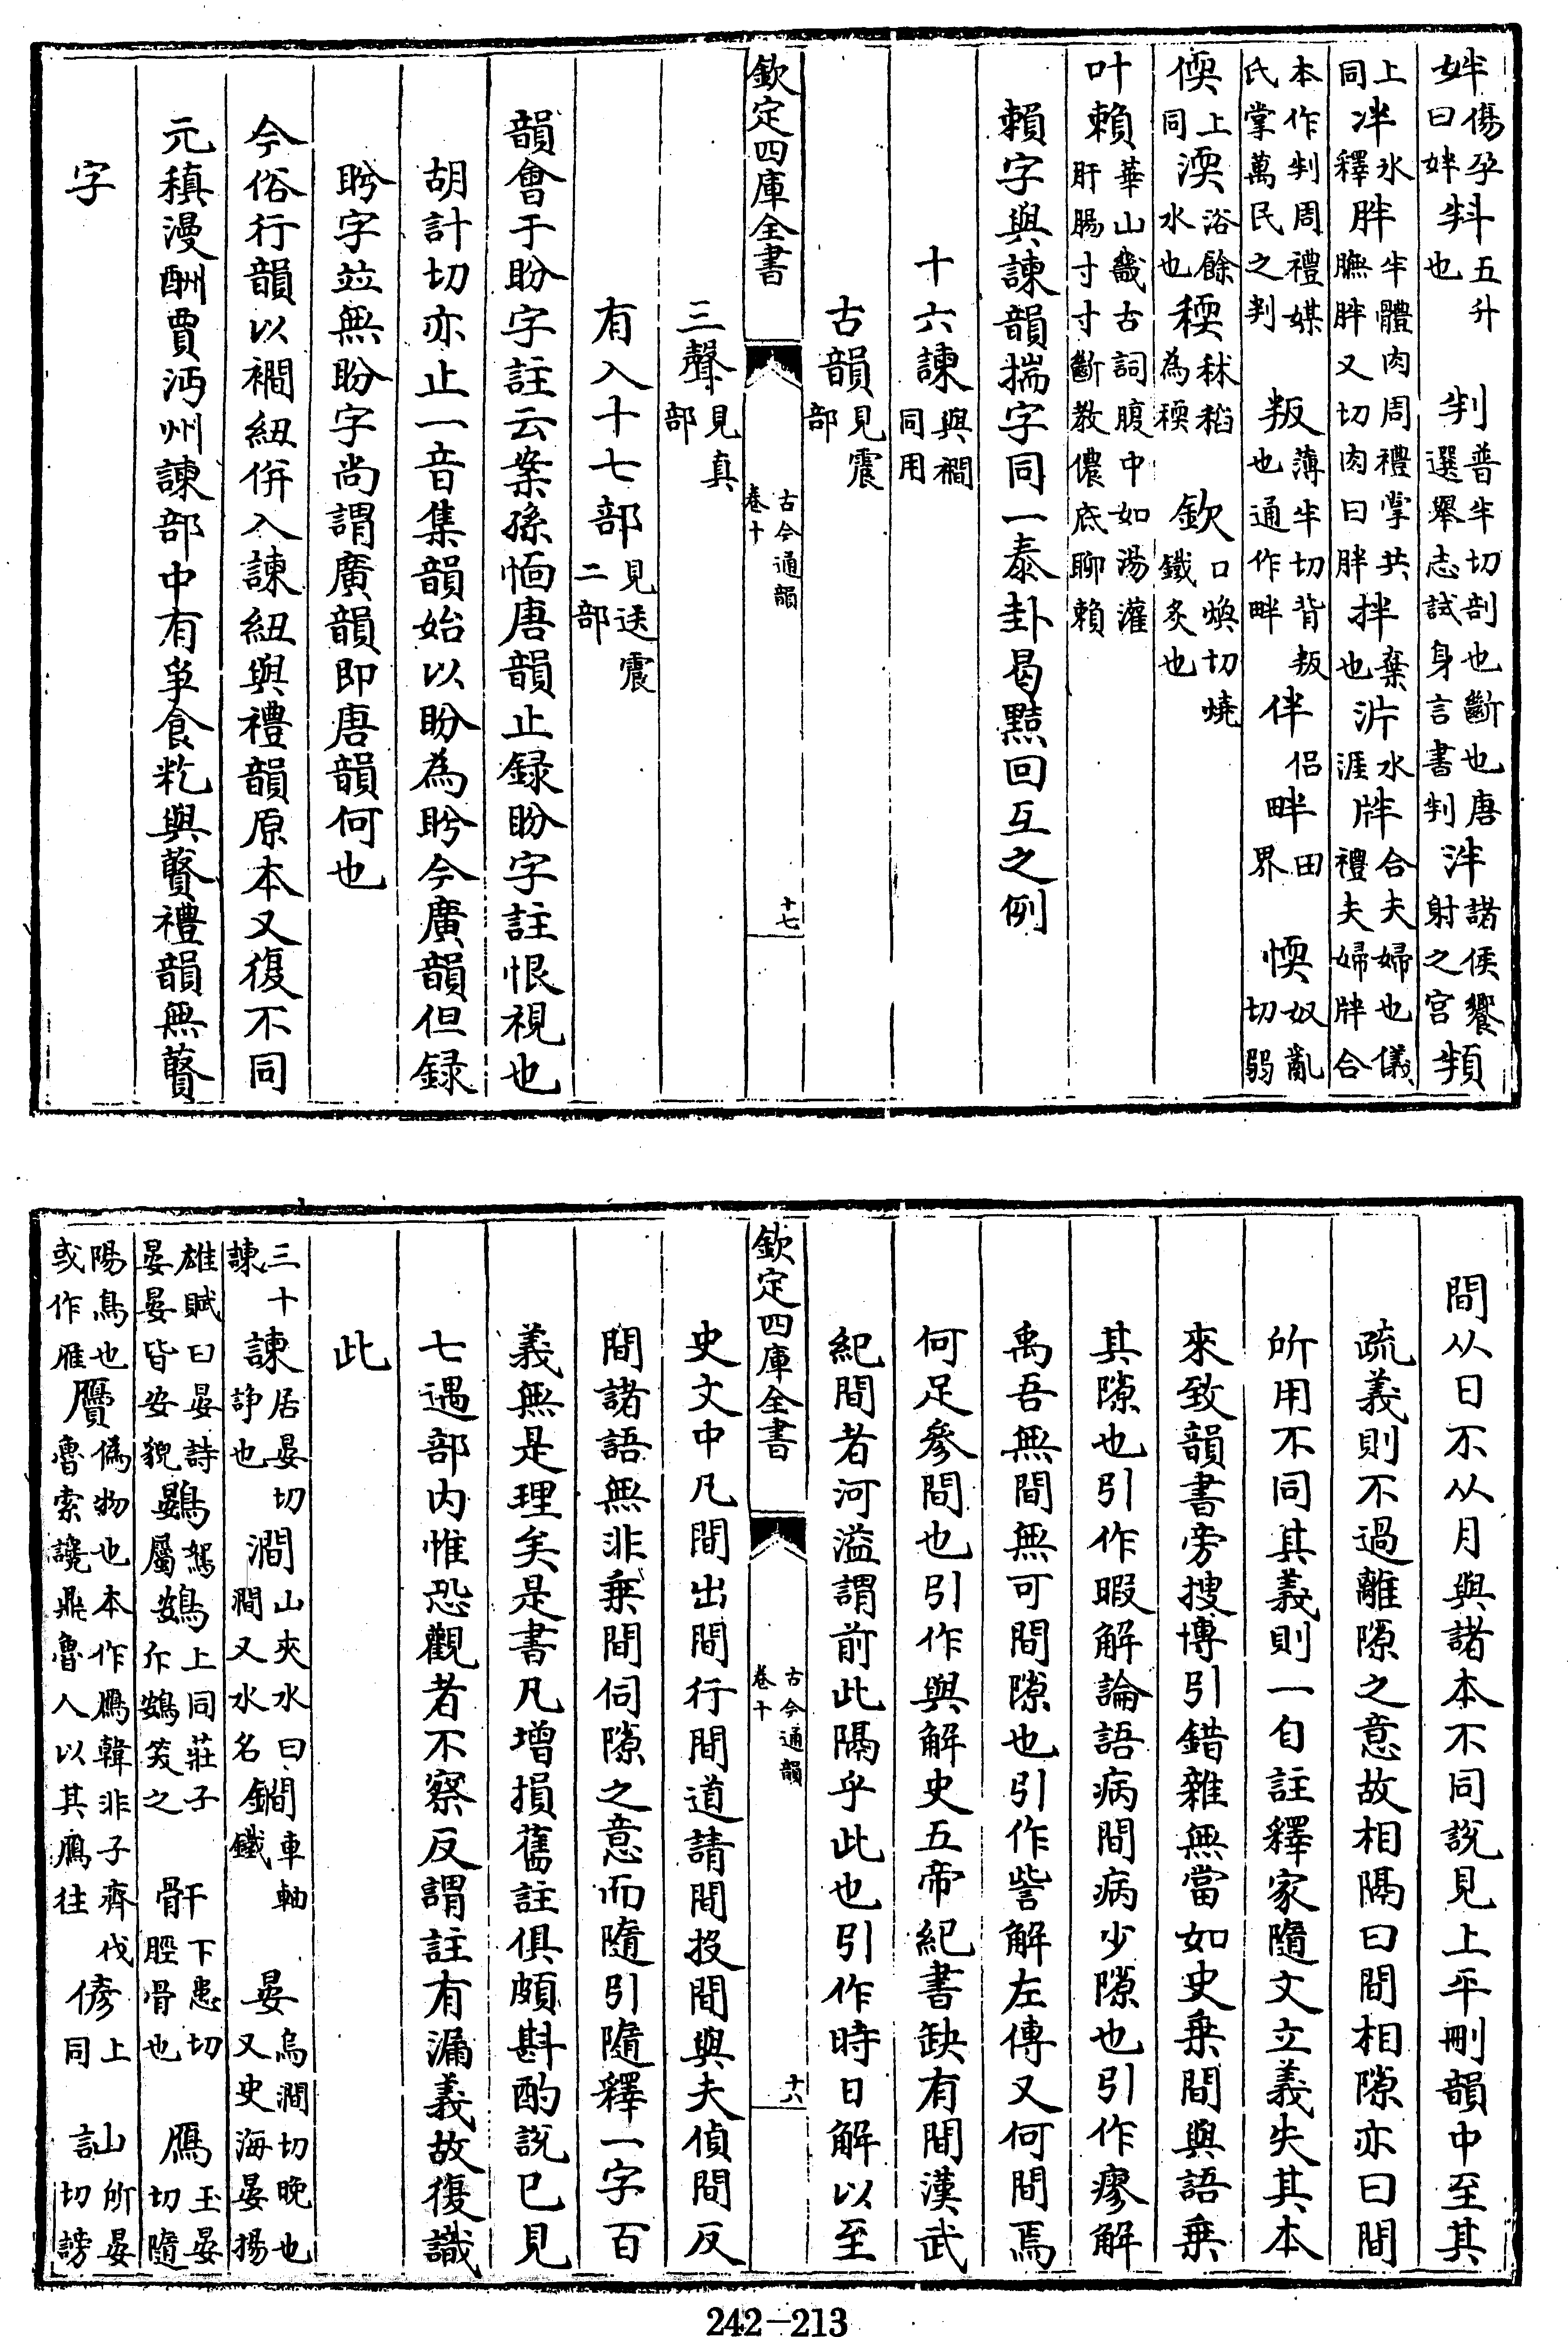 姅傷孕曰姅㪵五升也判普半切剖也斷也唐選舉志試身言書判泮諸侯饗射之宮頖
上同泮冰釋胖半體肉周禮掌共膴胖又切肉曰胖拌棄也沜水涯牉合夫婦也儀禮夫婦牉合
本作判周禮媒氏掌萬民之判叛薄半切背叛也通作畔伴侶畔田界愞奴亂切弱
偄上同渜浴餘水也稬秫稻為稬㰸口煥切燒鐵炙也
叶賴華山畿古詞腹中如湯灌肝腸寸寸斷教儂底聊賴
賴字與諫韻揣字同一泰卦曷㸃回互之例
十六諫與襇同用
古韻見震部
欽定四庫全書 古今通韻卷十 十七
三聲見真部
有入十七部見送震二部
韻會于盼字註云案孫愐唐韻止録盼字註恨視也
胡計切亦止一音集韻始以盼為盻今廣韻但録
盻字並無盼字尚謂廣韻即唐韻何也
今俗行韻以襇紐併入諫紐與禮韻原本又復不同
元稹漫酬賈沔州諫部中有爭食䊠與贋禮韻無贋
字
間从日不从月與諸本不同說見上平刪韻中至其
疏義則不過離隙之意故相隔曰間相隙亦曰間
所用不同其義則一自註釋家隨文立義失其本
來致韻書旁搜博引錯雜無當如史乗間與語乗
其隙也引作暇解論語病間病少隙也引作瘳解
禹吾無間無可間隙也引作訾解左傳又何間焉
何足參間也引作與解史五帝紀書缺有間漢武
紀間者河溢謂前此隔乎此也引作時日解以至
欽定四庫全書 古今通韻卷十 十六
史文中凡間出間行間道請間投間與夫偵間反
間諸語無非乗間伺隙之意而隨引隨釋一字百
義無是理矣是書凡增損舊註俱頗斟酌說已見
七遇部内惟恐觀者不察反謂註有漏義故復識
此
三十諫諫居晏切諍也澗山夾水曰澗又水名鐧車軸鐵晏烏澗切晚也又史海晏揚
雄賦曰晏詩晏晏皆安貌鷃鴽屬鴳上同莊子斥鴳笑之骭下患切脛骨也鴈五晏切隨
陽鳥也或作雁贗偽物也本作鴈韓非子齊伐魯索讒鼎魯人以其鴈往偐上同訕所晏切謗
242-213